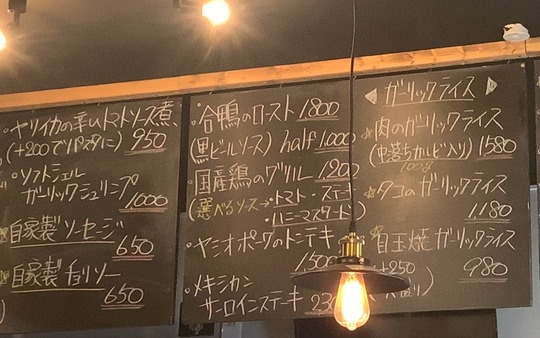 ・ヤリイカの辛いトマトソース煮
(+200でパスタに) 950
・ソフトシェル
ガーリックシュリンプ
1,000
自家製 ソーセージ
650
自家製 チョリソー
650
・合鴨のロースト 1,800
(黒ビールソース) half 1,000
・国産鶏のグリル 1,200
(選べるソース→・トマト・ステーキ
・ハニーマスタード)
・ヤシオポークのトンテキ
1500
・メキシカン
サーロインステーキ
ガーリックライス
肉のガーリックライス
(中落ちカルビ入り) 1580
100g
タコのガーリックライス
1,180
目玉焼ガーリックライス
+250
980